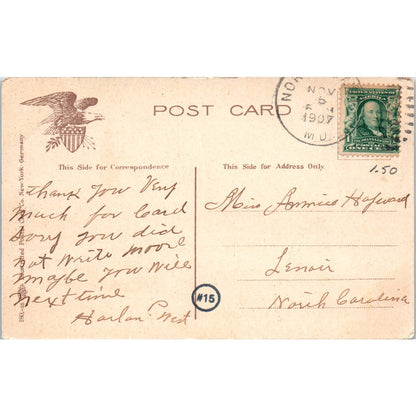 POST CARD
NOV
5
1907
M.O.
1.50
This Side for Correspondence
This Side for Address Only
Thank You Very
Much for Card
Sorry You did
Not Write Moore
Maybe You Will
Next time
Harlon West
Miss Annice Hayward
Lenoir
North Carolina
#15
New York. Germany